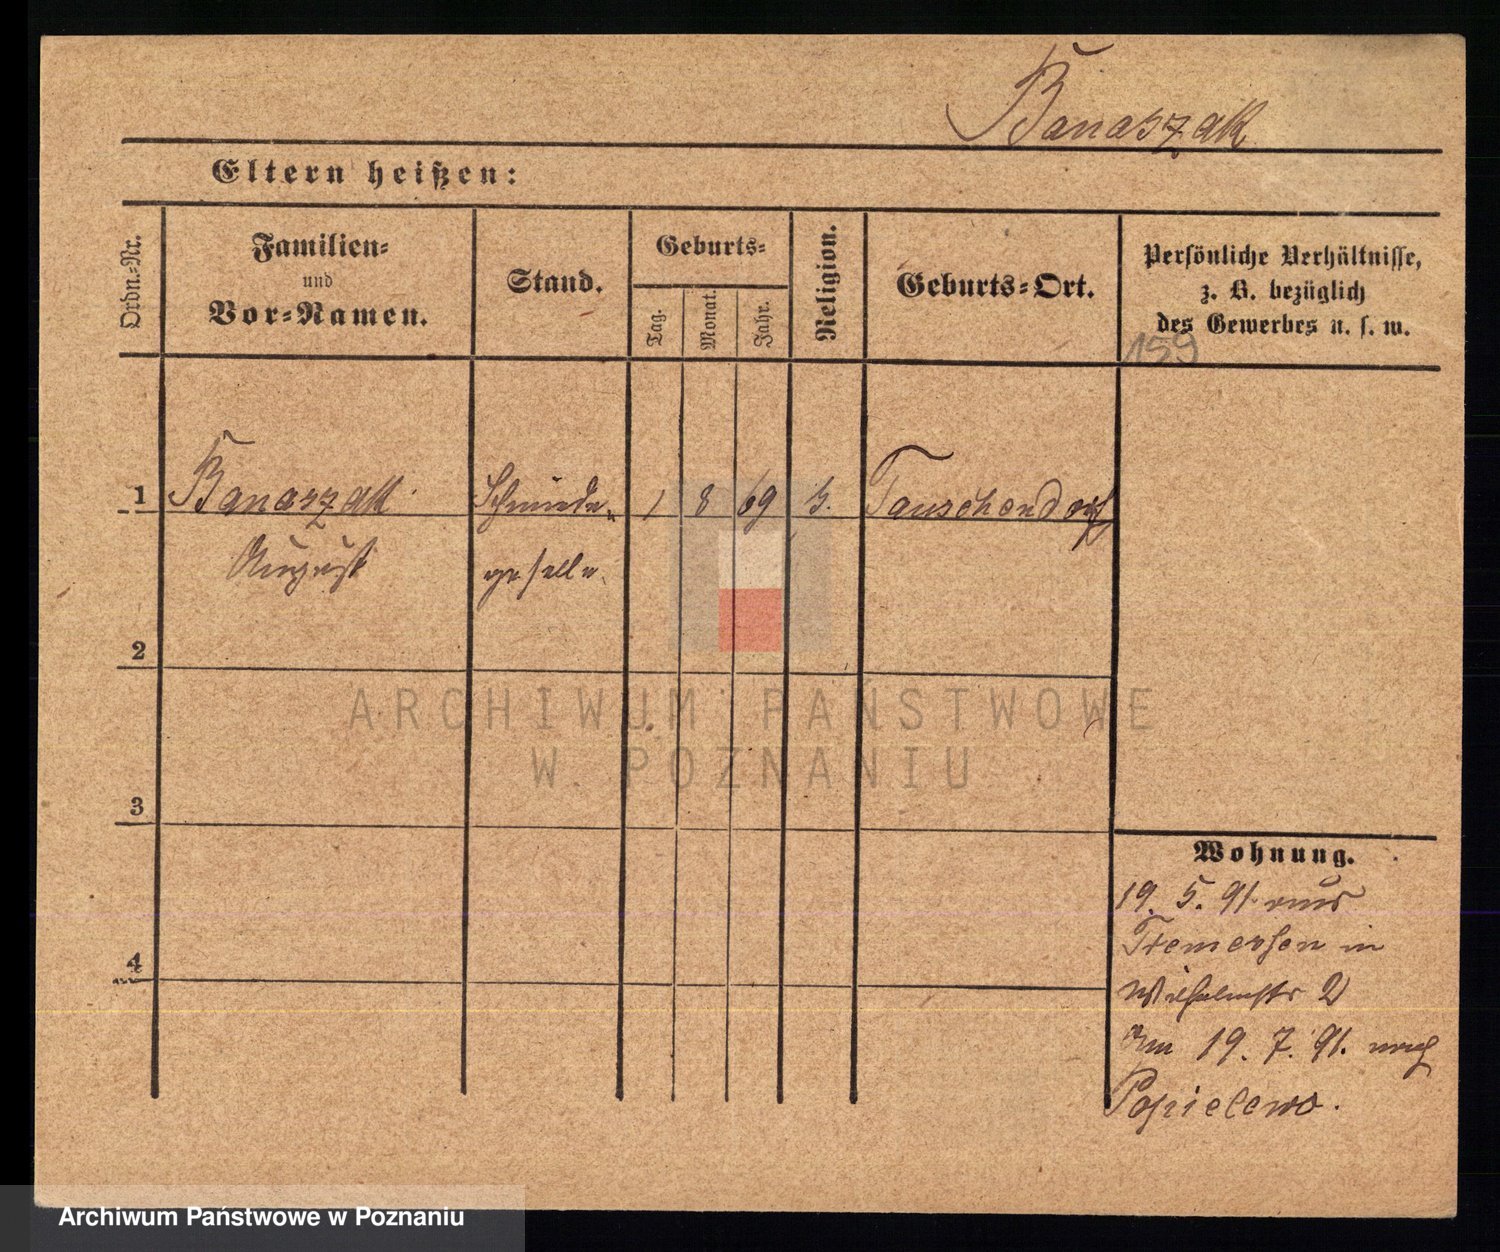 Banaszak
Eltern heißen:
Ordn.-Nr.
Familien-
und
Vor-Namen.
Stand.
Geburts-
Tag.
Monat.
Jahr.
Religion.
Geburts-Ort.
Persönliche Verhältnisse,
z. B. bezüglich
des Gewerbes u. s. w.
159
1 Banaszak Schmiede- 1 8 69 Tauschendorf
August geselle
2
3
4
Wohnung.
19. 5. 91. aus
Tremessen in
Wilhelmstr 2
19. 7. 91. nach
Popielewo.
ARCHIWUM PAŃSTWOWE
W POZNANIU
Archiwum Państwowe w Poznaniu